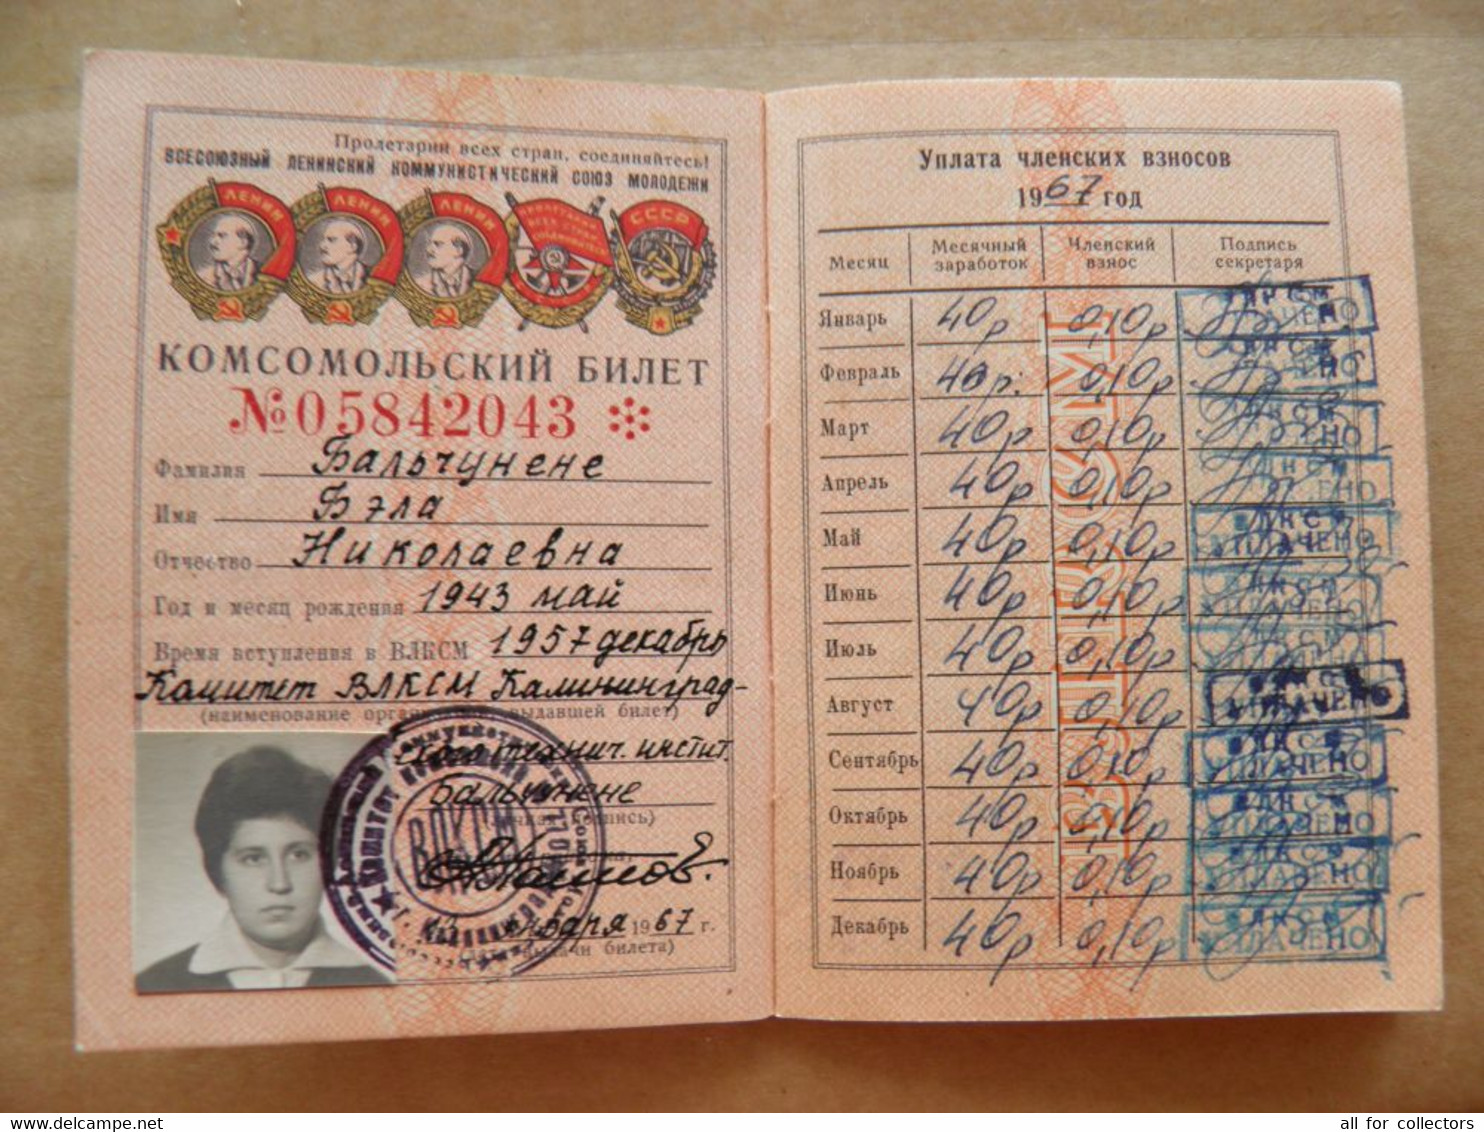 Пролетарии всех стран, соединяйтесь!
ВСЕСОЮЗНЫЙ ЛЕНИНСКИЙ КОММУНИСТИЧЕСКИЙ СОЮЗ МОЛОДЕЖИ
ЛЕНИН ЛЕНИН ЛЕНИН СССР
КОМСОМОЛЬСКИЙ БИЛЕТ
№05842043
Фамилия Бальчунене
Имя Бэла
Отчество Николаевна
Год и месяц рождения 1943 май
Время вступления в ВЛКСМ 1957 декабрь
Комитет ВЛКСМ Калининград-
(наименование организации, выдавшей билет)
технич. инстит.
Бальчунене
(личная подпись)
ВЛКСМ
января 1967 г.
(дата выдачи билета)
Уплата членских взносов
1967 год
Месяц Месячный заработок Членский взнос Подпись секретаря
Январь 40р 0,10р ВЛКСМ УПЛАЧЕНО
Февраль 40р. 0,10р ВЛКСМ УПЛАЧЕНО
Март 40р 0,10р ВЛКСМ УПЛАЧЕНО
Апрель 40р 0,10р ВЛКСМ УПЛАЧЕНО
Май 40р 0,10р ВЛКСМ УПЛАЧЕНО
Июнь 40р 0,10р ВЛКСМ УПЛАЧЕНО
Июль 40р 0,10р ВЛКСМ УПЛАЧЕНО
Август 40р 0,10р ВЛКСМ УПЛАЧЕНО
Сентябрь 40р 0,10р ВЛКСМ УПЛАЧЕНО
Октябрь 40р 0,10р ВЛКСМ УПЛАЧЕНО
Ноябрь 40р 0,10р ВЛКСМ УПЛАЧЕНО
Декабрь 40р 0,10р ВЛКСМ УПЛАЧЕНО
ВЛКСМ
all for collectors